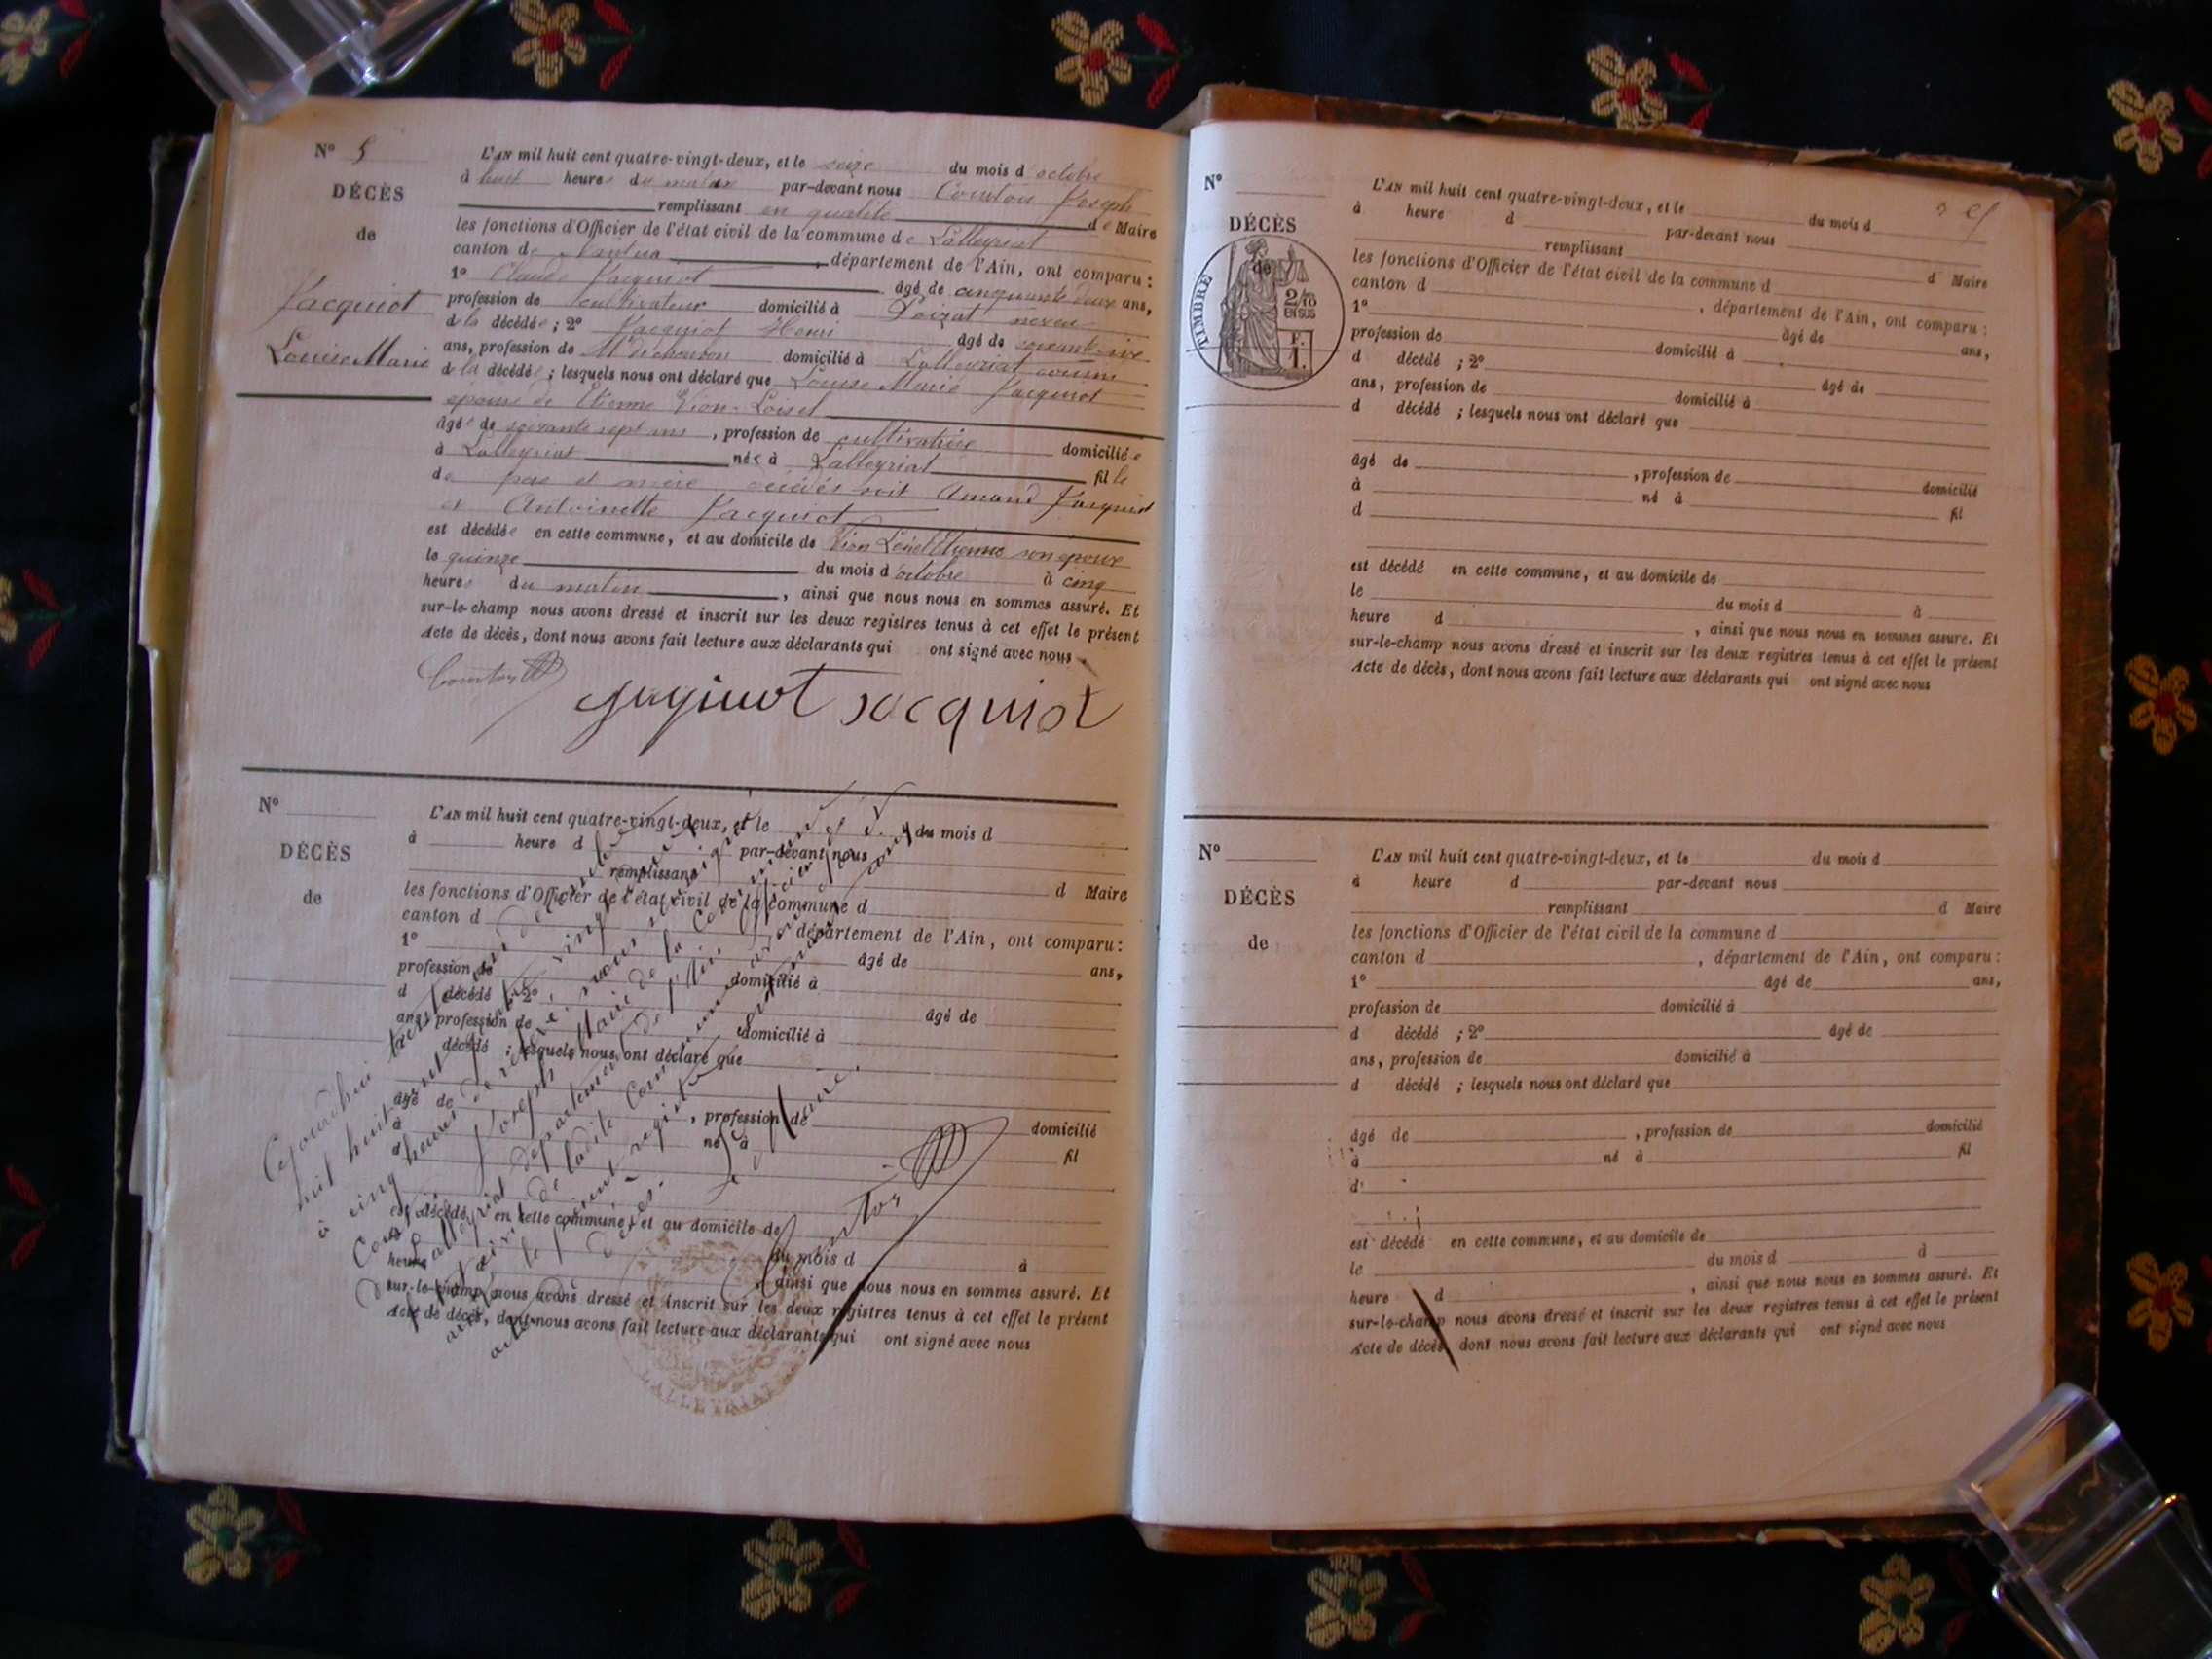 N° 5
DÉCÈS
de
Jacquiot
Louise Marie
L'AN mil huit cent quatre-vingt-deux, et le seize du mois d'octobre
à huit heures du matin par-devant nous Courtois Joseph
remplissant en qualité de Maire
les fonctions d'Officier de l'état civil de la commune de Lalleyriat
canton de Nantua, département de l'Ain, ont comparu :
1° Claude Jacquiot âgé de cinquante deux ans,
profession de cultivateur domicilié à Poizat neveu
de la décédée ; 2° Jacquiot Henri âgé de soixante six
ans, profession de domicilié à Lalleyriat cousin
de la décédée ; lesquels nous ont déclaré que Louise Marie Jacquiot
épouse de Etienne Vion-Loisel
âgée de soixante sept ans, profession de cultivatrice domiciliée
à Lalleyriat née à Lalleyriat fille
de père et mère décédés soit Amand Jacquiot
et Antoinette Jacquiot
est décédée en cette commune, et au domicile de Vion Loisel Etienne son époux
le quinze du mois d'octobre à cinq
heures du matin, ainsi que nous nous en sommes assuré. Et
sur-le-champ nous avons dressé et inscrit sur les deux registres tenus à cet effet le présent
Acte de décès, dont nous avons fait lecture aux déclarants qui ont signé avec nous
Courtois
Jacquiot Jacquiot
N°
DÉCÈS
de
L'AN mil huit cent quatre-vingt-deux, et le du mois d
à heure d par-devant nous
remplissant d Maire
les fonctions d'Officier de l'état civil de la commune d
canton d , département de l'Ain, ont comparu :
1° âgé de ans,
profession de domicilié à
d décédé ; 2° âgé de
ans, profession de domicilié à
d décédé ; lesquels nous ont déclaré que
âgé de , profession de domicilié
à né à fil
est décédé en cette commune, et au domicile de
du mois d à
heure d , ainsi que nous nous en sommes assuré. Et
sur-le-champ nous avons dressé et inscrit sur les deux registres tenus à cet effet le présent
Acte de décès, dont nous avons fait lecture aux déclarants qui ont signé avec nous
Cejourd'hui
mil huit cent
à cinq heures
Joseph Maire de la
Lalleyriat département de l'Ain
de ladite commune
le présent registre
décès.
le Maire.
Courtois
LALLEYRIAT
N°
DÉCÈS
de
TIMBRE
2/10
EN SUS
F.
1.
L'AN mil huit cent quatre-vingt-deux, et le du mois d
à heure d par-devant nous
remplissant d Maire
les fonctions d'Officier de l'état civil de la commune d
canton d , département de l'Ain, ont comparu :
1° âgé de ans,
profession de domicilié à
d décédé ; 2° âgé de
ans, profession de domicilié à
d décédé ; lesquels nous ont déclaré que
âgé de , profession de domicilié
à né à fil
d
est décédé en cette commune, et au domicile de
le du mois d à
heure d , ainsi que nous nous en sommes assuré. Et
sur-le-champ nous avons dressé et inscrit sur les deux registres tenus à cet effet le présent
Acte de décès, dont nous avons fait lecture aux déclarants qui ont signé avec nous
N°
DÉCÈS
de
L'AN mil huit cent quatre-vingt-deux, et le du mois d
à heure d par-devant nous
remplissant d Maire
les fonctions d'Officier de l'état civil de la commune d
canton d , département de l'Ain, ont comparu :
1° âgé de ans,
profession de domicilié à
d décédé ; 2° âgé de
ans, profession de domicilié à
d décédé ; lesquels nous ont déclaré que
âgé de , profession de domicilié
à né à fil
d
est décédé en cette commune, et au domicile de
le du mois d à
heure d , ainsi que nous nous en sommes assuré. Et
sur-le-champ nous avons dressé et inscrit sur les deux registres tenus à cet effet le présent
Acte de décès, dont nous avons fait lecture aux déclarants qui ont signé avec nous